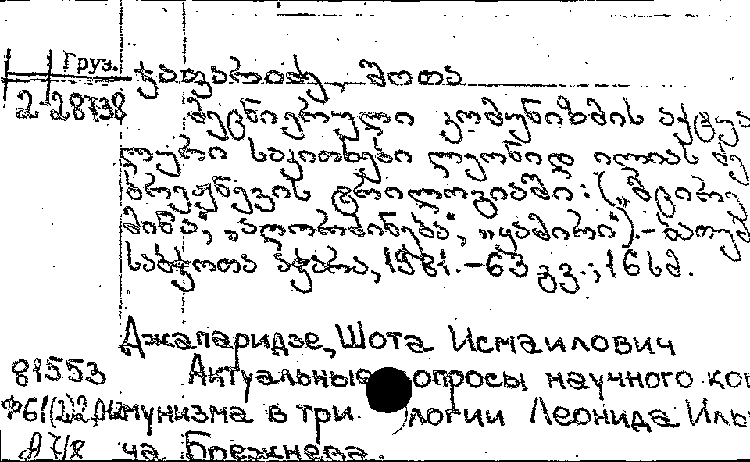 Груз.
ჯაფარიძე, შოთა
2-28738
მეცნიერული კომუნიზმის აქტუა
ლური საკითხები ლეონიდ ილიას ძე
ბრეჟნევის ტრილოგიაში: („მცირე
მიწა“, „აღორძინება“, „ყამირი“).-ბათუმ
საბჭოთა აჭარა, 1981.-63 გვ.; 16 სმ.
Джапаридзе, Шота Исмаилович
81553 Актуальные опросы научного ком
мунизма в три логии Леонида Иль
ча Брежнева.